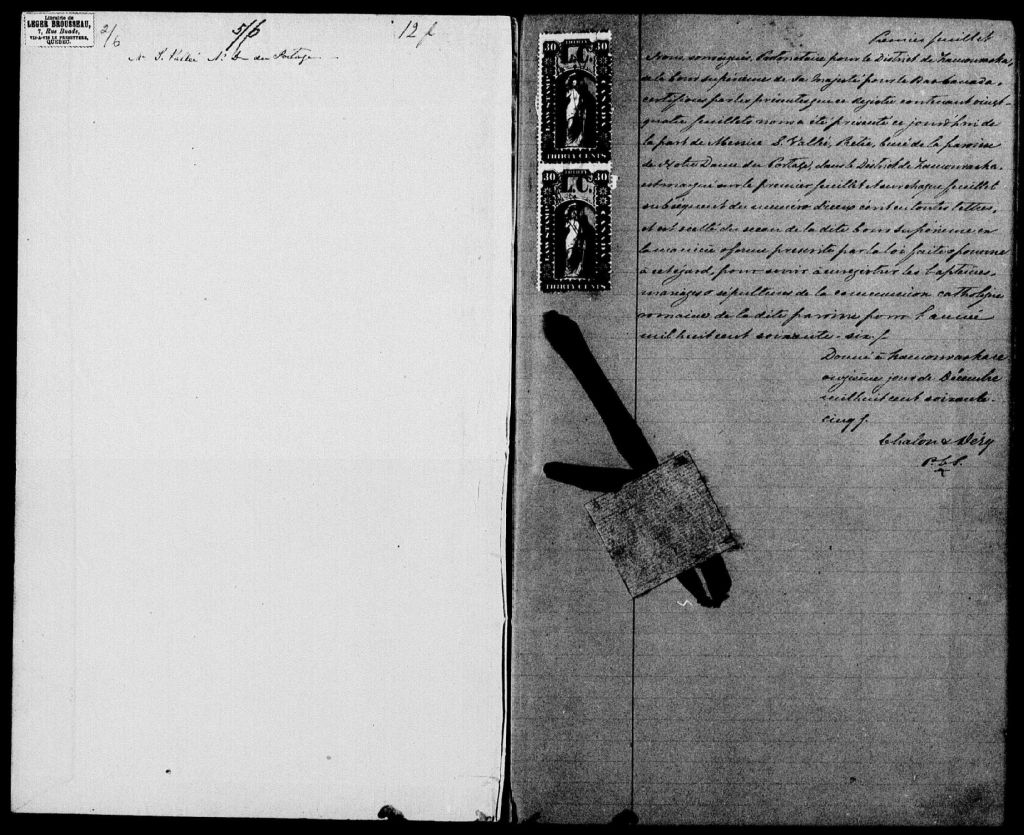 Librairie de
LEGER BROUSSEAU,
7, Rue Buade,
VIS-A-VIS LE PRESBYTERE,
QUEBEC.
2/6
5/6
12 f
Mr S. Vallée N. D. du Portage
Premier feuillet
30 THIRTY 30
L.C.
LAW STAMP
CANADA
THIRTY CENTS
30 THIRTY 30
L.C.
LAW STAMP
CANADA
THIRTY CENTS
Nous, soussignés, Protonotaire pour le District de Kamouraska,
de la Cour Supérieure de Sa Majesté pour le Bas-Canada,
certifions par les présentes que ce régistre contenant vingt-
quatre feuillets nous a été présenté ce jourd'hui de
la part de Messire S. Vallée, Prêtre, Curé de la paroisse
de Notre Dame du Portage, dans le District de Kamouraska,
est marqué sur le premier feuillet et sur chaque feuillet
subséquent du numéro deux cent en toutes lettres,
et est scellé du sceau de la dite Cour Supérieure en
la manière & forme prescrite par la loi faite & pourvue
à cet égard, pour servir à enregistrer les baptêmes,
mariages & sépultures de la communion catholique
romaine de la dite paroisse pour l'année
mil huit cent soixante-six f.
Donné à Kamouraska ce
onzième jour de Décembre
mil huit cent soixante-
cinq f.
Chalou & Déry
P. C. S.